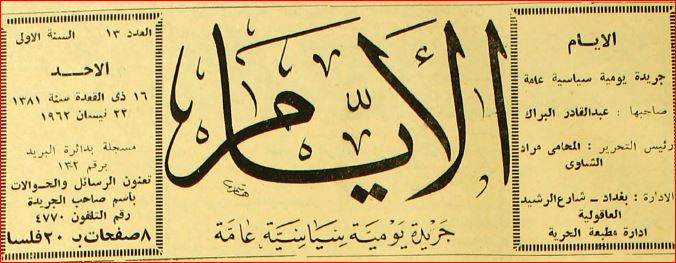 الايام
جريدة يومية سياسية عامة
صاحبها : عبدالقادر البراك
رئيس التحرير : المحامى مراد
الشاوى
الادارة : بغداد ــ شارع الرشيد
العاقولية
ادارة مطبعة الحرية
الأيام
جريدة يومية سياسية عامة
العدد ١٣ السنة الاولى
الاحد
١٦ ذى القعدة سنة ١٣٨١
٢٢ نيسان ١٩٦٢
مسجلة بدائرة البريد
برقم ١٣٢
تعنون الرسائل والحوالات
باسم صاحب الجريدة
رقم التلفون ٤٧٧٠
٨ صفحات بـ ٢٠ فلسا